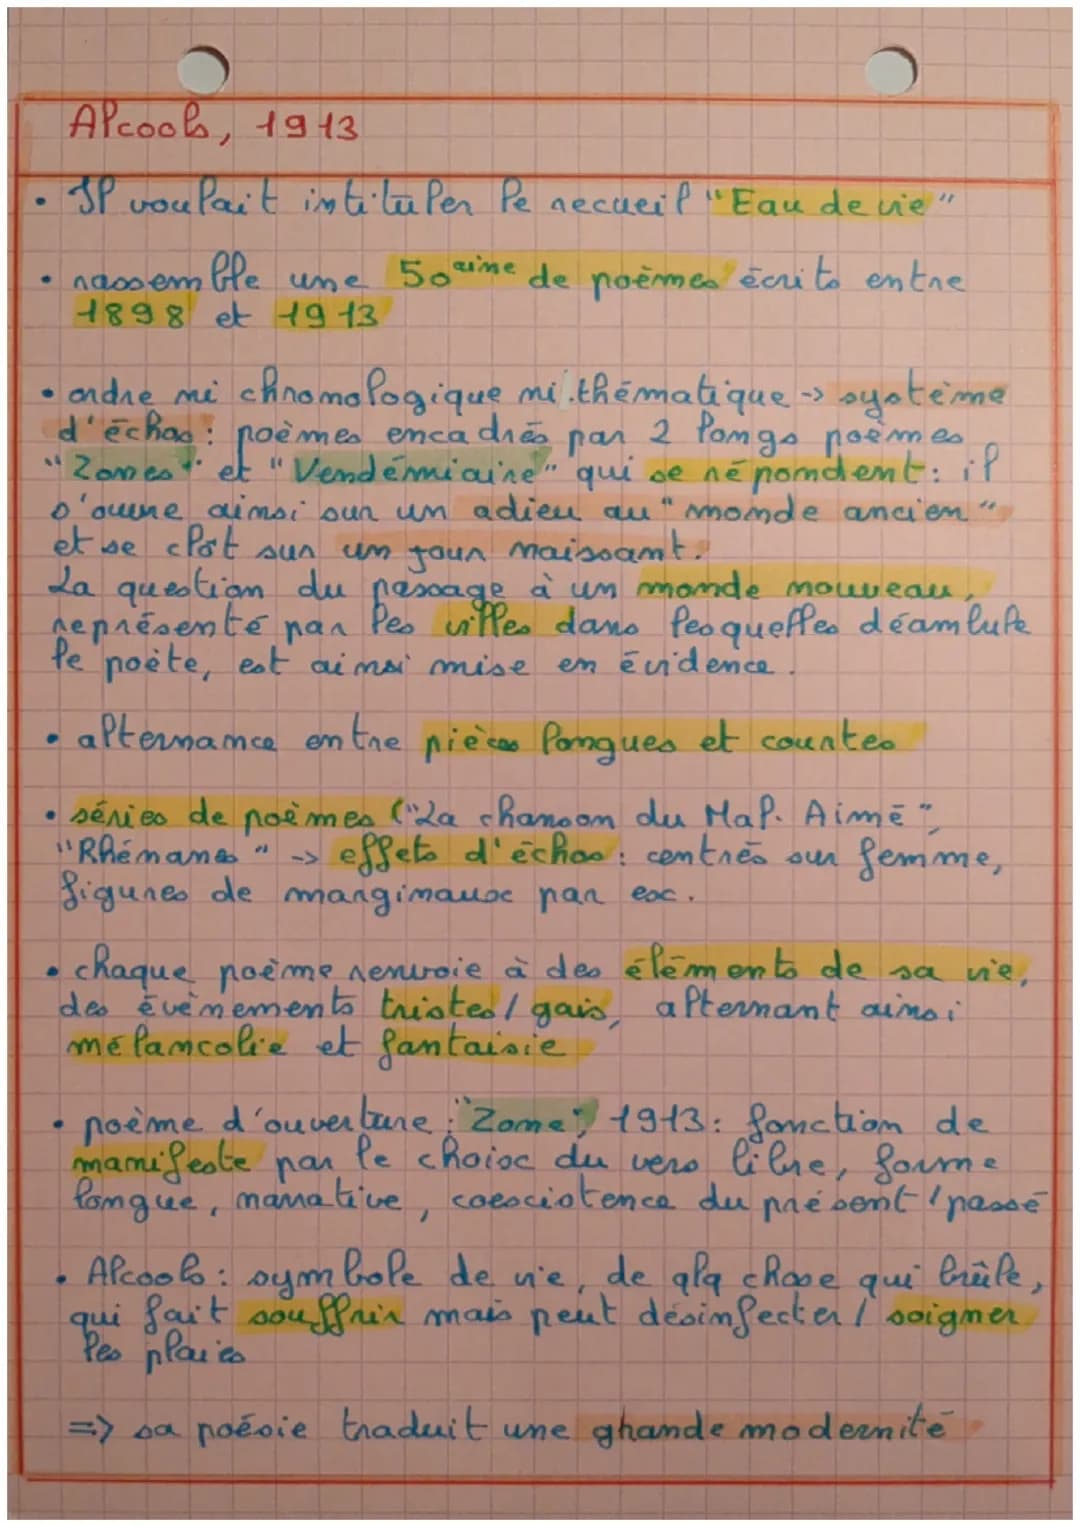 Alcools, 1913
• Il voulait intituler le recueil "Eau de vie"
• rassemble une 50aine de poèmes écrits entre
1898 et 1913
• ordre ni chronologique ni thématique -> système
d'échos : poèmes encadrés par 2 longs poèmes
"Zones" et "Vendémiaire" qui se répondent : il
s'ouvre ainsi sur un adieu au "monde ancien"
et se clôt sur un jour naissant.
La question du passage à un monde nouveau,
représenté par les villes dans lesquelles déambule
le poète, est ainsi mise en évidence.
• alternance entre pièces longues et courtes
• séries de poèmes ("La chanson du Mal. Aimé",
"Rhénanes" -> effets d'échos : centrés sur femme,
figures de marginaux par ex.
• chaque poème renvoie à des éléments de sa vie,
des évènements tristes / gais, alternant ainsi
mélancolie et fantaisie
• poème d'ouverture : "Zone", 1913 : fonction de
manifeste par le choix du vers libre, forme
longue, narrative, coexistence du présent / passé
• Alcools : symbole de vie, de qlq chose qui brûle,
qui fait souffrir mais peut désinfecter / soigner
les plaies
=> sa poésie traduit une grande modernité